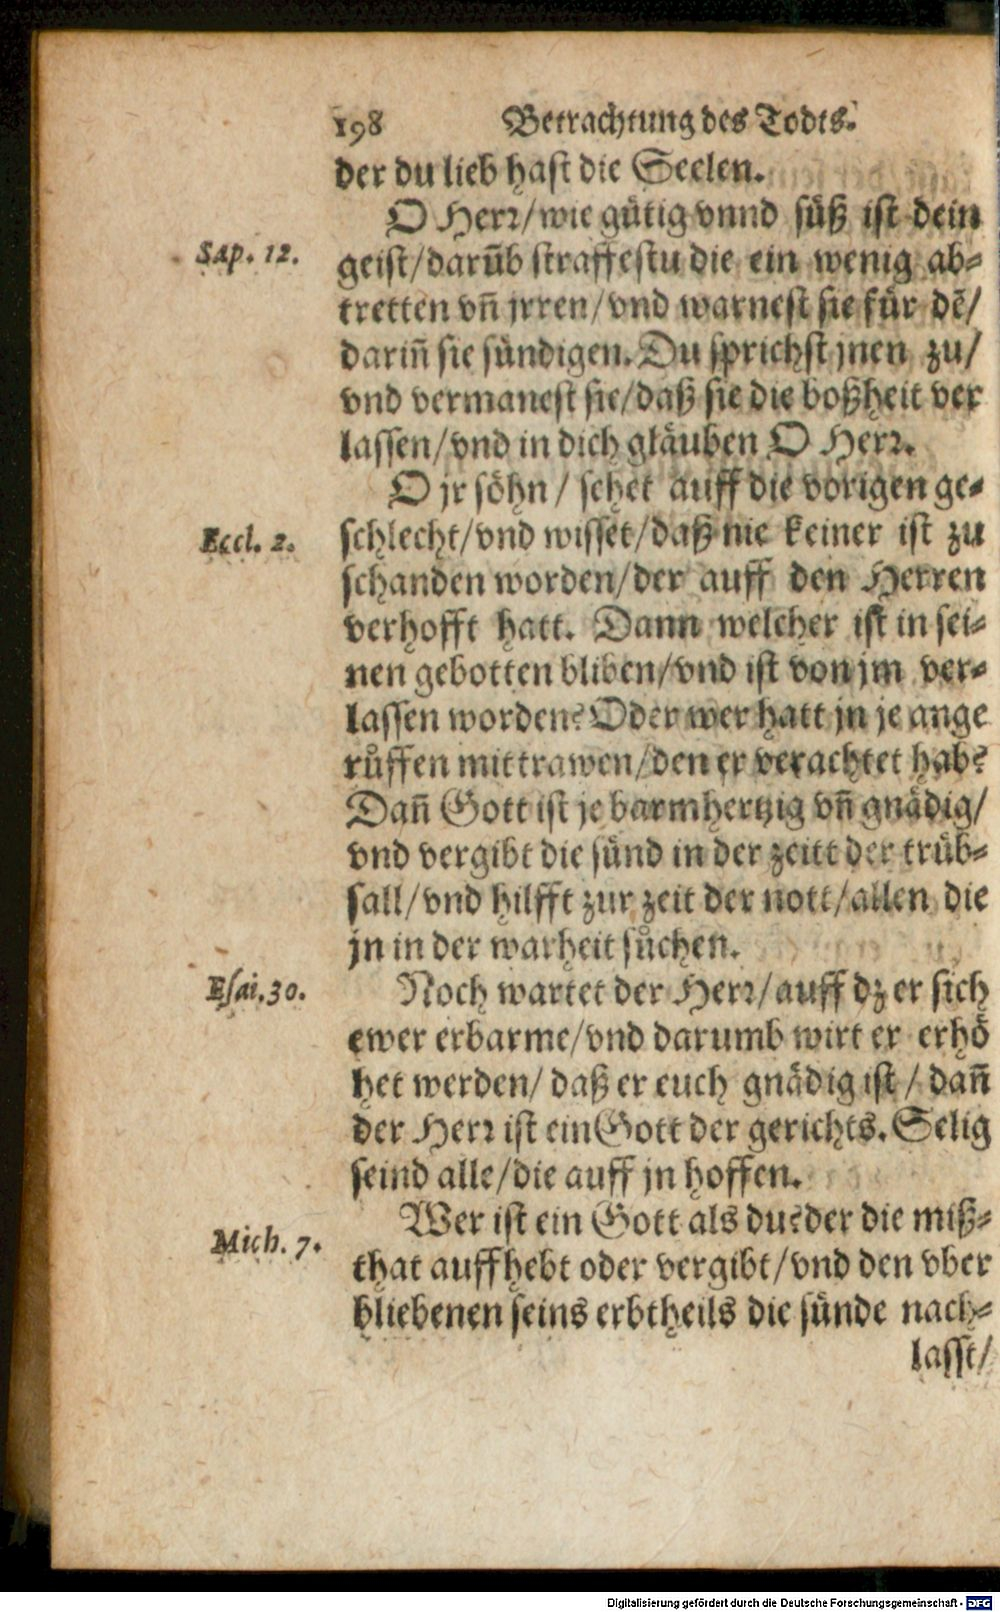 198 Betrachtung des Todts.
der du lieb hast die Seelen.
O Herr/wie gütig vnnd süß ist dein
Sap. 12.
geist/darūb straffestu die ein wenig ab-
tretten vn̄ jrren/vnd warnest sie für dē/
darin̄ sie sündigen. Du sprichst jnen zu/
vnd vermanest sie/daß sie die boßheit ver
lassen/vnd in dich gläuben O Herr.
O jr söhn/ sehet auff die vorigen ge-
Eccl. 2.
schlecht/vnd wisset/daß nie keiner ist zu
schanden worden/der auff den Herren
verhofft hatt. Dann welcher ist in sei-
nen gebotten bliben/vnd ist von jm ver-
lassen worden? Oder wer hatt jn je ange
růffen mit trawen/den er verachtet hab?
Dan̄ Gott ist je barmhertzig vn̄ gnädig/
vnd vergibt die sünd in der zeitt der trüb-
sall/vnd hilfft zur zeit der nott/allen die
jn in der warheit sůchen.
Esai. 30.
Noch wartet der Herr/auff dz er sich
ewer erbarme/vnd darumb wirt er erhö
het werden/ daß er euch gnädig ist/ dan̄
der Herr ist ein Gott der gerichts. Selig
seind alle/die auff jn hoffen.
Wer ist ein Gott als du? der die miß-
Mich. 7.
that auffhebt oder vergibt/vnd den vber
bliebenen seins erbtheils die sünde nach-
lasst/
Digitalisierung gefördert durch die Deutsche Forschungsgemeinschaft - DFG